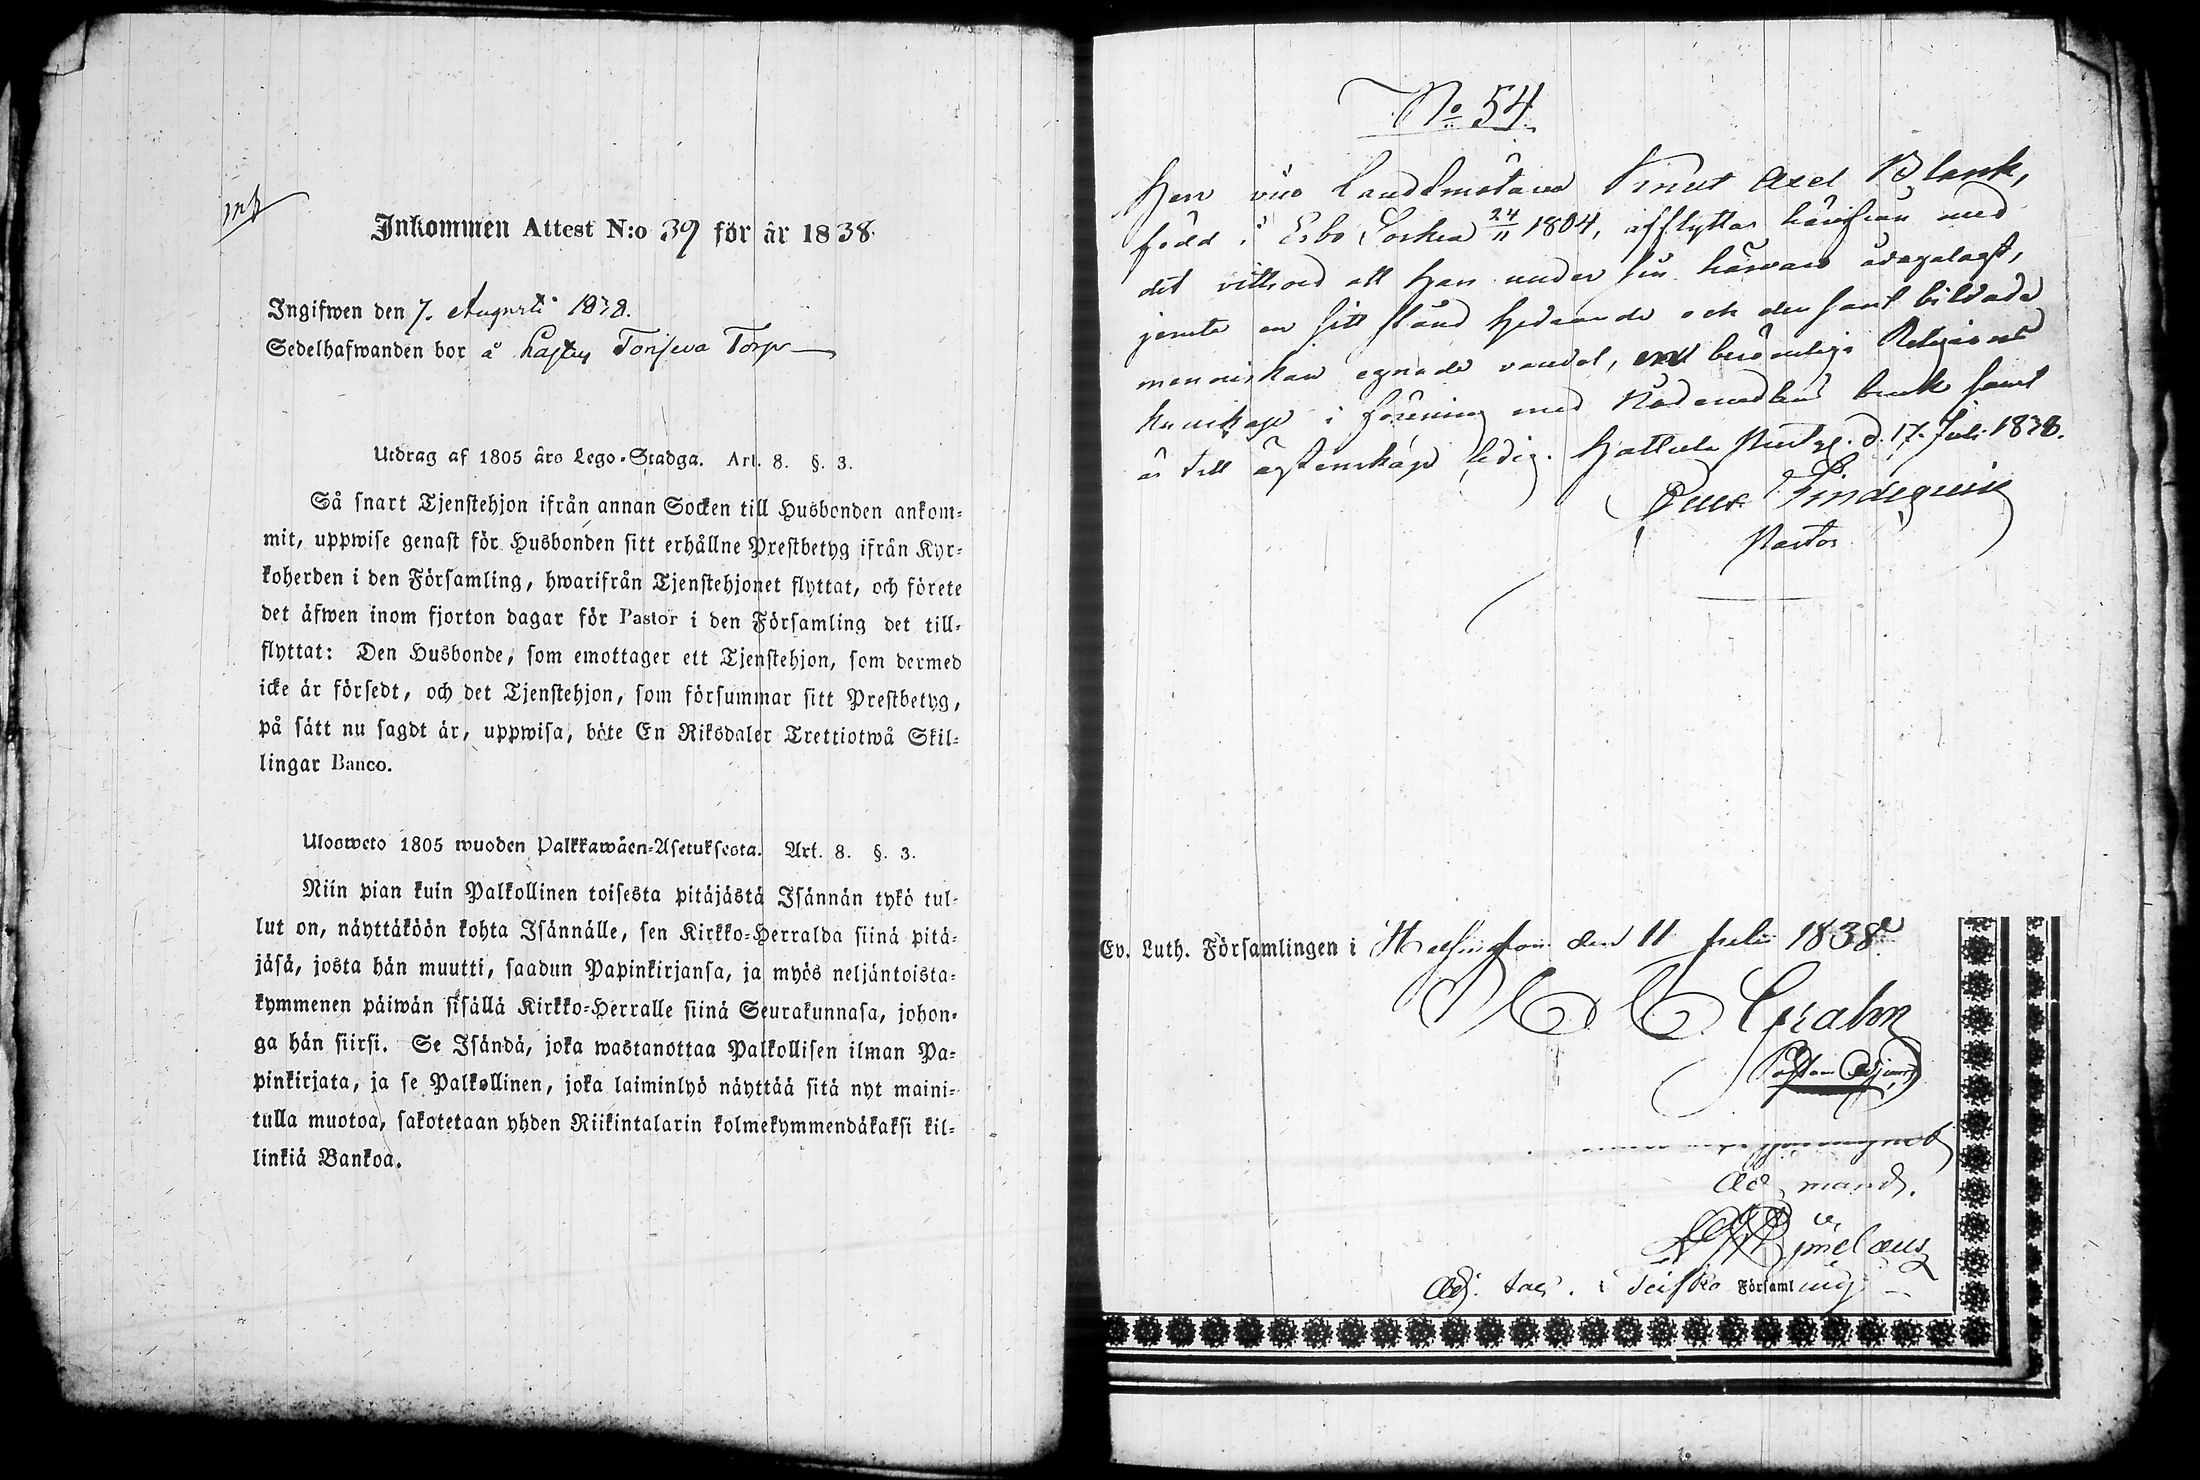 Inkommen Attest N:o 39 för år 1838.
Ingifwen den 7. Augusti 1838.
Sedelhafwanden bor å Torp
Utdrag af 1805 års Lego-Stadga. Art. 8. §. 3.
Så snart Tjenstehjon ifrån annan Socken till Husbonden ankom-
mit, uppwise genast för Husbonden sitt erhållne Prestbetyg ifrån Kyr-
koherden i den Församling, hwarifrån Tjenstehjonet flyttat, och förete
det äfwen inom fjorton dagar för Pastor i den Församling det till-
flyttat: Den Husbonde, som emottager ett Tjenstehjon, som dermed
icke är försedt, och det Tjenstehjon, som försummar sitt Prestbetyg,
på sätt nu sagdt är, uppwisa, böte En Riksdaler Trettiotwå Skil-
lingar Banco.
Ulosweto 1805 wuoden Palkkawäen-Asetuksesta. Art. 8. §. 3.
Niin pian kuin Palkollinen toisesta pitäjästä Isännän tykö tul-
lut on, näyttäköön kohta Isännälle, sen Kirkko-Herralda siinä pitä-
jäsä, josta hän muutti, saadun Papinkirjansa, ja myös neljäntoista-
kymmenen päiwän sisällä Kirkko-Herralle siinä Seurakunnasa, johon-
ga hän siirsi. Se Isändä, joka wastanottaa Palkollisen ilman Pa-
pinkirjata, ja se Palkollinen, joka laiminlyö näyttää sitä nyt maini-
tulla muotoa, sakotetaan yhden Riikintalarin kolmekymmendäkaksi kil-
linkiä Bankoa.
No 54.
Herr vice Landtmätaren Knut Axel Blank,
född i Esbo Socken 24/11 1804, afflyttar härifrån med
det vittsord att han under sin härvaro ådagalagt,
jemte en sitt stånd hedrande och den sant bildade
menniskan egnade vandel, berömlige Religions
kunskaper i förening med Nådemedlens bruk samt
är till ägtenskap ledig. Hattula Prestg. d. 17. Juli 1838.
Lindequist
Pastor
Ev. Luth. Församlingen i Helsingfors den 11 Juli 1838.
Crahn
Pastors Adjunct
Ad mand.
Adj. Sac. i Teisko Församling